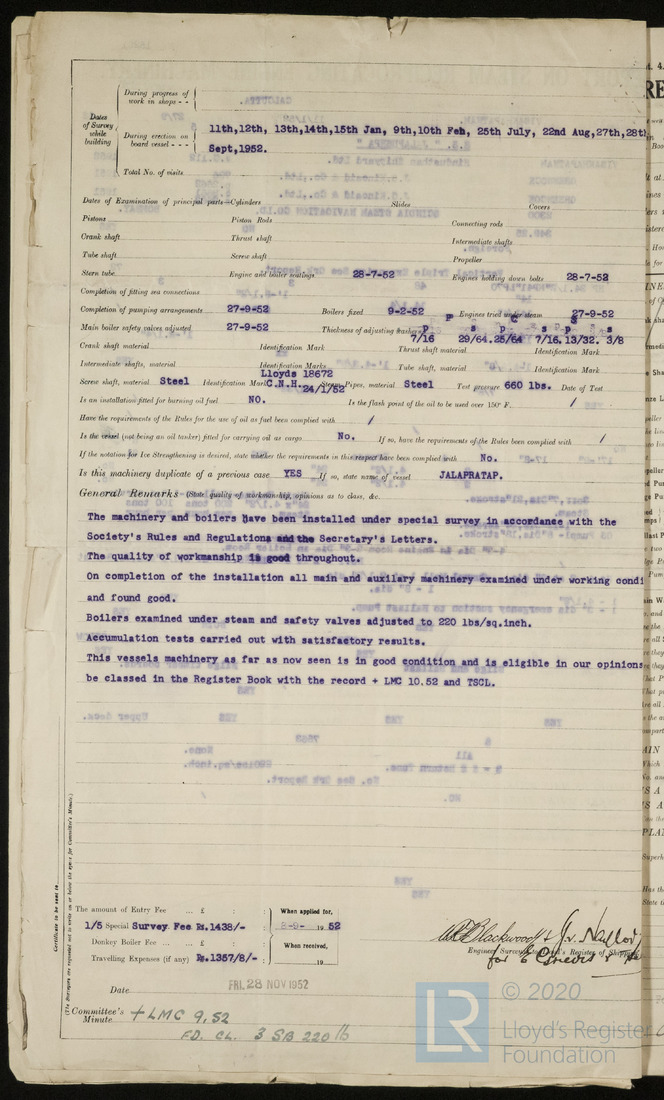 During progress of work in shops - -
Dates of Survey while building
During erection on board vessel - - -
11th,12th, 13th,14th,15th Jan, 9th,10th Feb, 25th July, 22nd Aug,27th,28th
Sept,1952.
Total No. of visits
Dates of Examination of principal parts—Cylinders Slides Covers
Pistons Piston Rods Connecting rods
Crank shaft Thrust shaft Intermediate shafts
Tube shaft Screw shaft Propeller
Stern tube Engine and boiler seatings 28-7-52 Engines holding down bolts 28-7-52
Completion of fitting sea connections
Completion of pumping arrangements 27-9-52 Boilers fixed 9-2-52 Engines tried under steam 27-9-52
Main boiler safety valves adjusted 27-9-52 Thickness of adjusting washers
P P C S
p s p s p s
7/16 29/64.25/64 7/16.13/32. 3/8
Crank shaft material Identification Mark Thrust shaft material Identification Mark
Intermediate shafts, material Identification Marks Tube shaft, material Identification Mark
Lloyds 18672
Screw shaft, material Steel Identification Mark C.N.H. 24/1/52 Steam Pipes, material Steel Test pressure 660 lbs. Date of Test
Is an installation fitted for burning oil fuel NO. Is the flash point of the oil to be used over 150° F. /
Have the requirements of the Rules for the use of oil as fuel been complied with /
Is the vessel (not being an oil tanker) fitted for carrying oil as cargo No. If so, have the requirements of the Rules been complied with /
If the notation for Ice Strengthening is desired, state whether the requirements in this respect have been complied with No.
Is this machinery duplicate of a previous case YES If so, state name of vessel JALAPRATAP.
General Remarks (State quality of workmanship, opinions as to class, &c.
The machinery and boilers have been installed under special survey in accordance with the
Society's Rules and Regulations and the Secretary's Letters.
The quality of workmanship is good throughout.
On completion of the installation all main and auxilary machinery examined under working condi
and found good.
Boilers examined under steam and safety valves adjusted to 220 lbs/sq.inch.
Accumulation tests carried out with satisfactory results.
This vessels machinery as far as now seen is in good condition and is eligible in our opinions
be classed in the Register Book with the record + LMC 10.52 and TSCL.
Certificate to be sent to
(The Surveyors are requested not to write on or below the space for Committee's Minute.)
The amount of Entry Fee ... £ : When applied for,
1/5 Special Survey Fee Rs.1438/- 8-9- 19 52
Donkey Boiler Fee ... ... £ : When received,
Travelling Expenses (if any) Rs.1357/8/- 19
Blackwood & J.V. Naylor
Engineer Surveyor to Lloyd's Register of Shipping
for
Date FRI. 28 NOV 1952
Committee's Minute. + LMC 9,52
FD. CL. 3 SB 220 lb
© 2020
LR
Lloyd's Register
Foundation